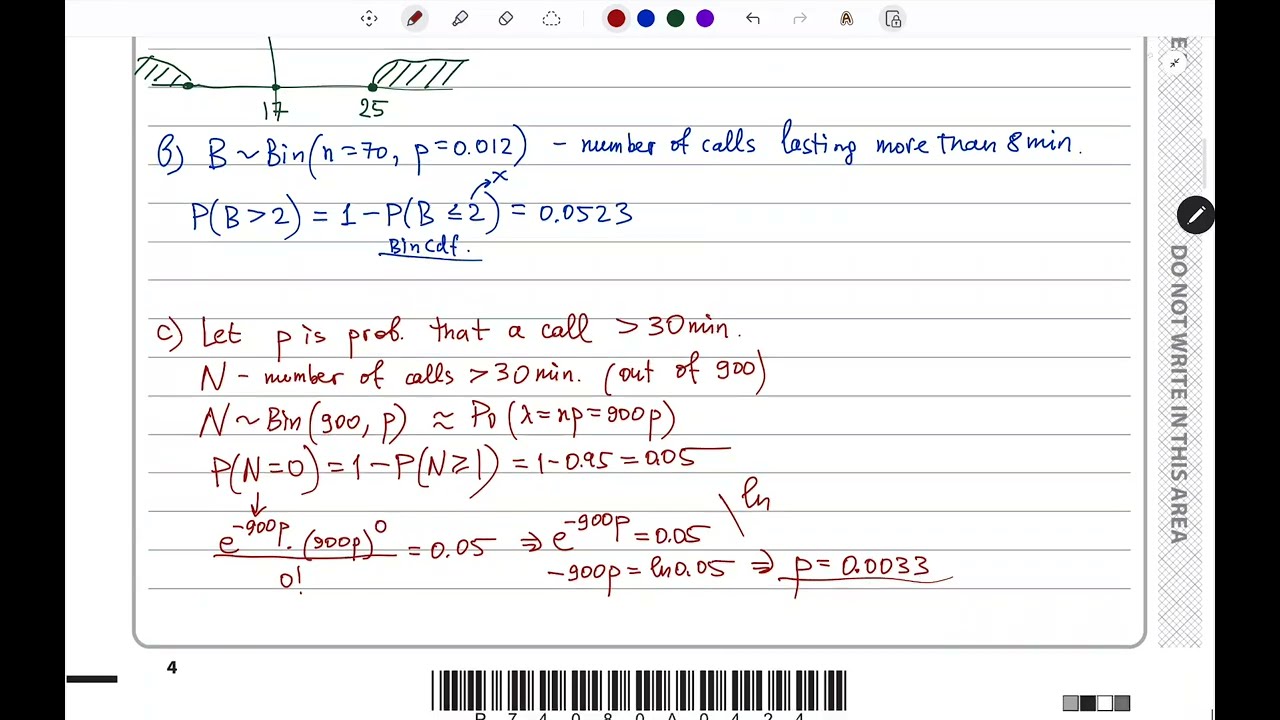 17 25
b) B ~ Bin(n=70, p=0.012) – number of calls lasting more than 8 min.
x
P(B > 2) = 1 – P(B ≤ 2) = 0.0523
Bincdf.
c) Let p is prob. that a call > 30 min.
N – number of calls > 30 min. (out of 900)
N ~ Bin(900, p) ≈ Po(λ=np=900p)
P(N=0) = 1 – P(N ≥ 1) = 1 – 0.95 = 0.05
ln
e^{-900p} · (900p)^0 / 0! = 0.05 ⇒ e^{-900p} = 0.05
-900p = ln 0.05 ⇒ p = 0.0033
4
DO NOT WRITE IN THIS AREA
P 7 4 0 8 0 A 0 4 2 4